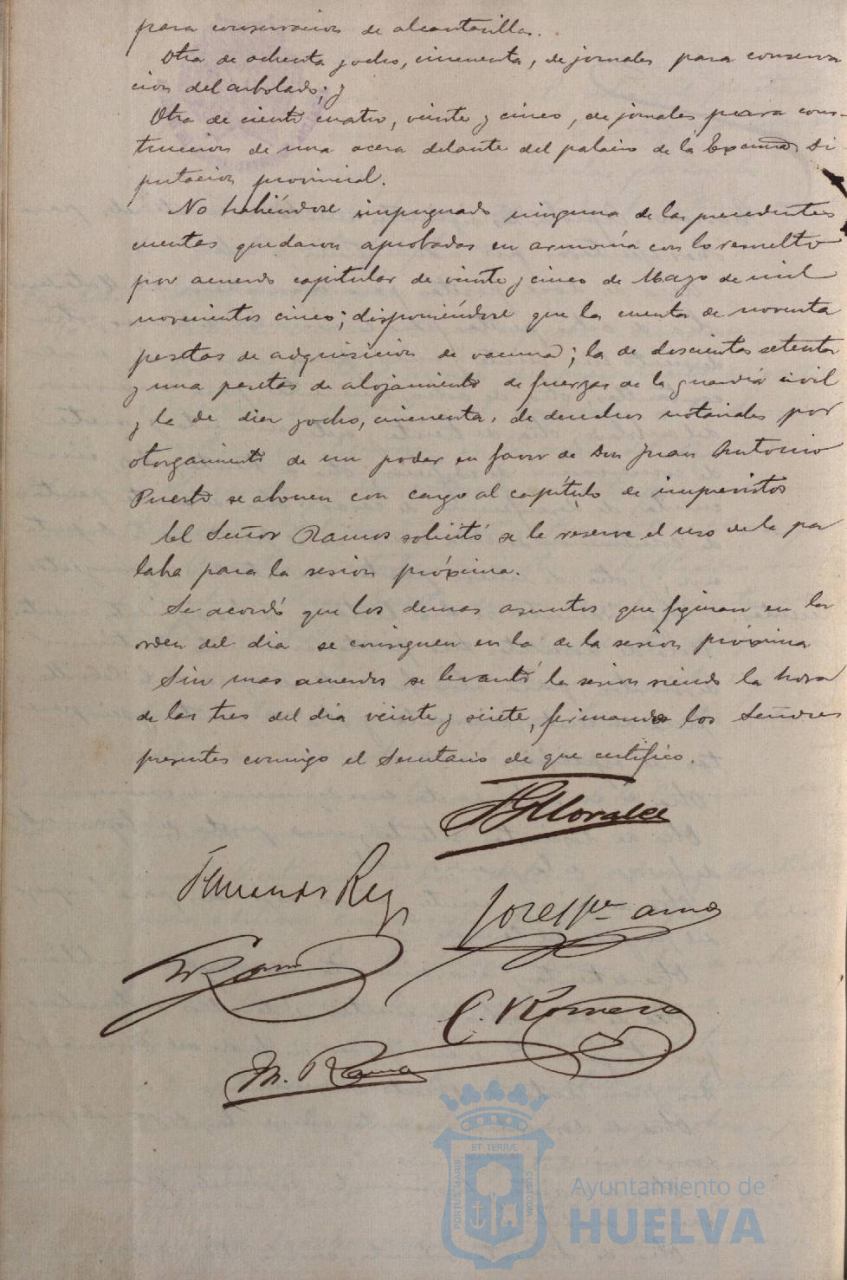 para conservacion de alcantarillas.
Otra de ochenta y ocho, cincuenta, de jornales para conserva
cion del arbolado; y
Otra de ciento cuatro, veinte y cinco, de jornales para cons-
truccion de una acera delante del palacio de la Excma Di
putacion provincial.
No habiéndose impugnado ninguna de las precedentes
cuentas quedaron aprobadas en armonía con lo resuelto
por acuerdo capitular de veinte y cinco de Mayo de mil
novecientos cinco; disponiéndose que la cuenta de noventa
pesetas de adquisicion de vacuna; la de doscientas setenta
y una pesetas de alojamiento de fuerzas de la guardia civil
y la de diez y ocho, cincuenta, de derechos notariales por
otorgamiento de un poder en favor de Don Juan Antonio
Puerto se abonen con cargo al capítulo de imprevistos
El Señor Ramos solicitó se le reserve el uso de la pa
labra para la sesion próxima.
Se acordó que los demas asuntos que figuran en la
orden del dia se consignen en la de la sesion próxima
Sin mas acuerdos se levantó la sesion siendo la hora
de las tres del dia veinte y siete, firmando los Señores
presentes conmigo el Secretario de que certifico.
Morales
Rey
C. Romero
M. Rama
PORTUS MARIS
ET TERRÆ
CUSTODIA
Ayuntamiento de
HUELVA